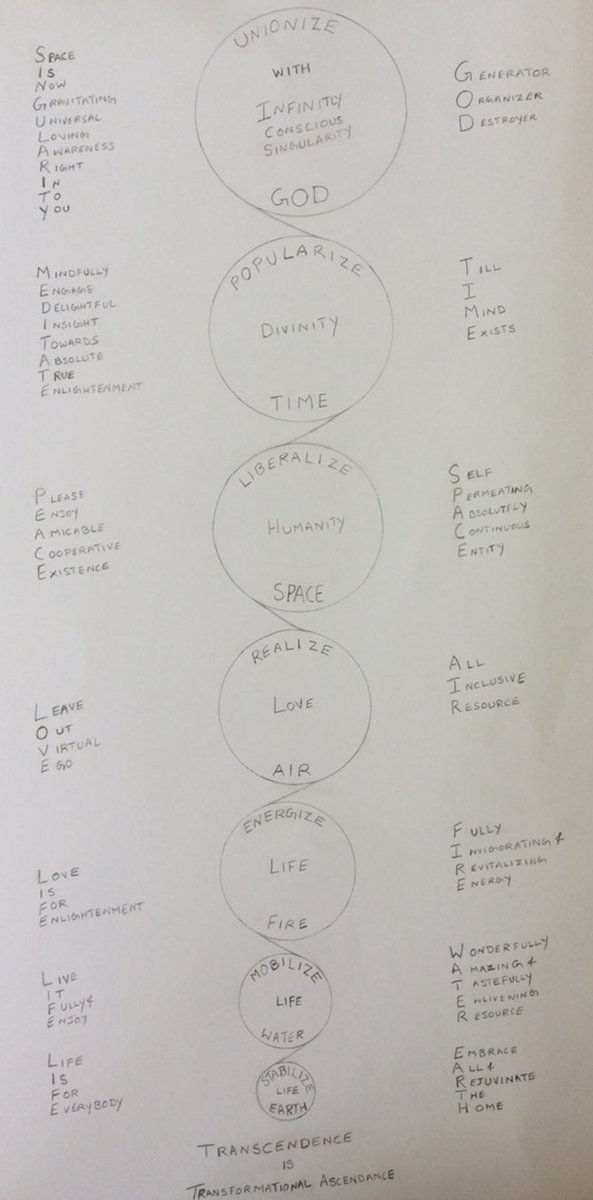 SPACE
IS
NOW
GRAVITATING
UNIVERSAL
LOVING
AWARENESS
RIGHT
IN
TO
YOU
UNIONIZE
WITH
INFINITLY
CONSCIOUS
SINGULARITY
GOD
GENERATOR
ORGANIZER
DESTROYER
MINDFULLY
ENGAGE
DELIGHTFUL
INSIGHT
TOWARDS
ABSOLUTE
TRUE
ENLIGHTENMENT
POPULARIZE
DIVINITY
TIME
TILL
I
MIND
EXISTS
PLEASE
ENJOY
AMICABLE
COOPERATIVE
EXISTENCE
LIBERALIZE
HUMANITY
SPACE
SELF
PERMEATING
ABSOLUTELY
CONTINUOUS
ENTITY
LEAVE
OUT
VIRTUAL
EGO
REALIZE
LOVE
AIR
ALL
INCLUSIVE
RESOURCE
LOVE
IS
FOR
ENLIGHTENMENT
ENERGIZE
LIFE
FIRE
FULLY
INVIGORATING &
REVITALIZING
ENERGY
LIVE
IT
FULLY &
ENJOY
MOBILIZE
LIFE
WATER
WONDERFULLY
AMAZING &
TASTEFULLY
ENLIVENING
RESOURCE
LIFE
IS
FOR
EVERYBODY
STABILIZE
LIFE
EARTH
EMBRACE
ALL &
REJUVINATE
THE
HOME
TRANSCENDENCE
IS
TRANSFORMATIONAL ASCENDANCE